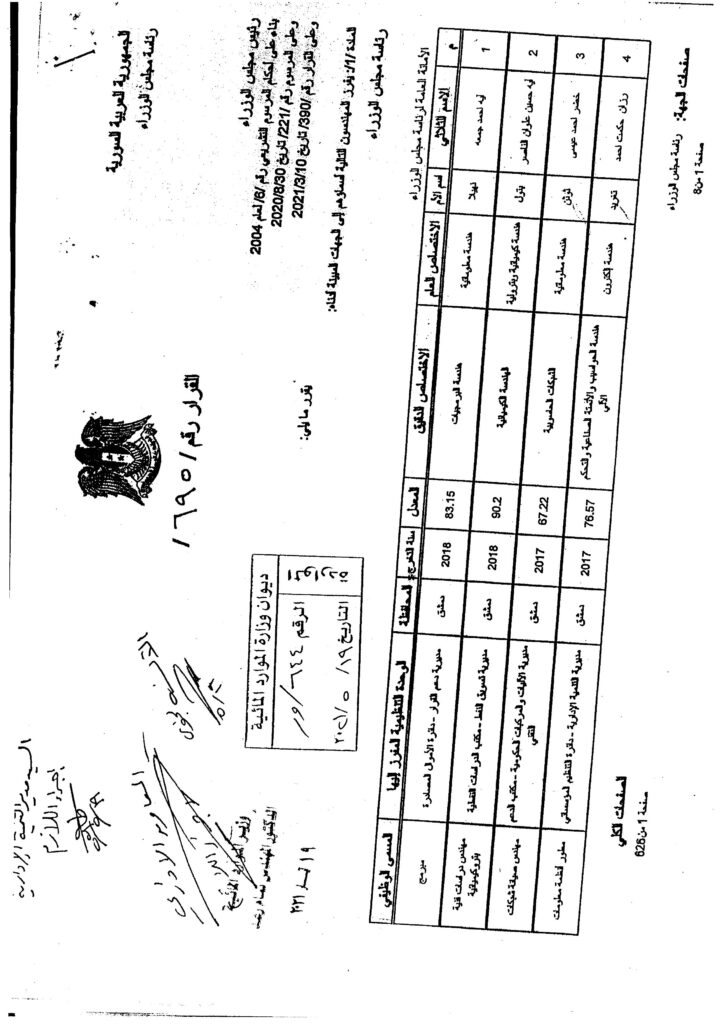 الجمهورية العربية السورية
رئاسة مجلس الوزراء
القرار رقم / ١٦٩٥ /
رئيس مجلس الوزراء
بناء على أحكام المرسوم التشريعي رقم /6/ لعام 2004
وعلى المرسوم رقم /221/ تاريخ 2020/8/30
وعلى القرار رقم /390/ تاريخ 2021/3/10
يقرر ما يلي:
المادة /1/: يفرز المهندسون التالية أسماؤهم إلى الجهات المبينة أدناه:
ديوان وزارة الموارد المائية
الرقم ٦٤٤ / و ر
التاريخ ١٩ / ٥ / ٢٠٢١
رئاسة مجلس الوزراء
الأمانة العامة لرئاسة مجلس الوزراء
م الإسم الثلاثي اسم الأم الاختصاص العام الاختصاص الدقيق المعدل سنة التخرج المحافظة الوحدة التنظيمية المفرز إليها المسمى الوظيفي
1 آيه احمد جمعه نبيلا هندسة معلوماتية هندسة البرمجيات 83.15 2018 دمشق مديرية دعم القرار - دائرة الأموال المصادرة مبرمج
2 آيه حسين الناصر بتول هندسة كيميائية وبترولية الهندسة الكيميائية 90.2 2018 دمشق مديرية تسويق النفط - مكتب الدراسات النفطية مهندس دراسات فنية بتروكيميائية
3 خضر احمد عيسى هندسة معلوماتية الشبكات الحاسوبية 67.22 2017 دمشق مديرية الآليات والمركبات الحكومية - مكتب الدعم التقني مهندس صيانة شبكات
4 رزان حكمت احمد تغريد هندسة إلكترون هندسة الحواسيب والأتمتة الصناعية والتحكم الآلي 76.57 2017 دمشق مديرية التنمية الإدارية - دائرة التنظيم المؤسساتي مطور أنظمة معلومات
صفحات الجهة: رئاسة مجلس الوزراء
صفحة 1 من 8
الصفحات الكلي
صفحة 1 من 626
السيد مدير التنمية الإدارية
إجراء اللازم
المعاون الإداري
وزير الموارد المائية
الدكتور المهندس تمام رعد
١٩ أيار ٢٠٢١